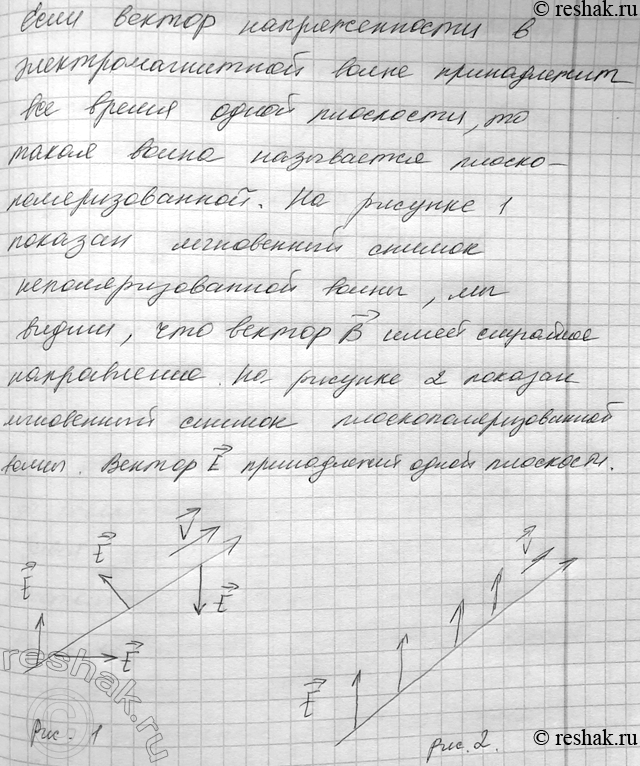 © reshak.ru
Если вектор напряженности в
электромагнитной волне принадлежит
все время одной плоскости, то
такая волна называется плоско-
поляризованной. На рисунке 1
показан мгновенный снимок
неполяризованной волны, мы
видим, что вектор B имеет случайное
направление. На рисунке 2 показан
мгновенный снимок плоскополяризованной
волны. Вектор E принадлежит одной плоскости.
V
E
E
E
E
V
E
reshak.ru
©
Рис. 1
рис. 2.
© reshak.ru